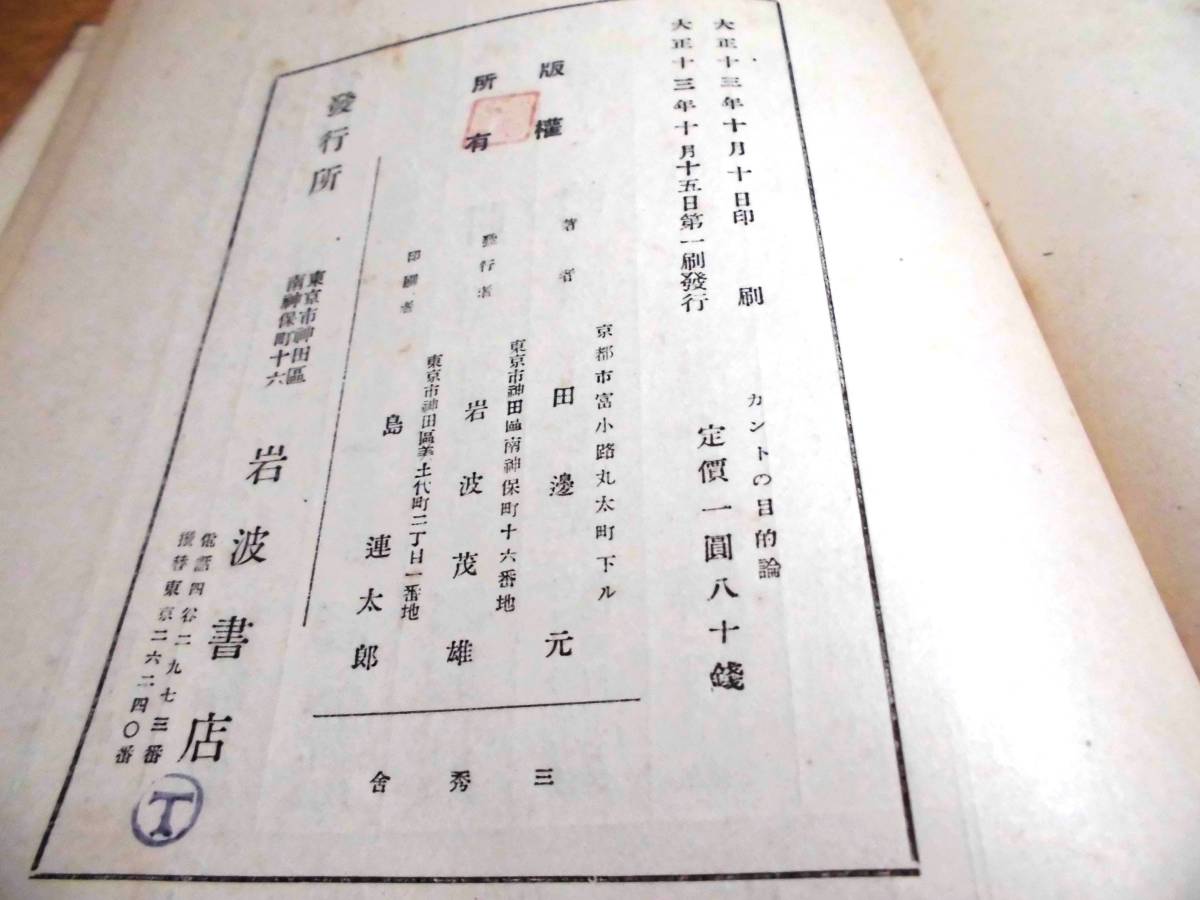 大正十三年十月十日印刷
大正十三年十月十五日第一刷發行
カントの目的論
定價一圓八十錢
版權
所有
京都市富小路丸太町下ル
著者 田邊元
東京市神田區南神保町十六番地
發行者 岩波茂雄
東京市神田區美土代町二丁目一番地
印刷者 島連太郎
三秀舍
發行所
東京市神田區
南神保町十六
岩波書店
電話四谷二九七三番
振替東京二六二四〇番
T